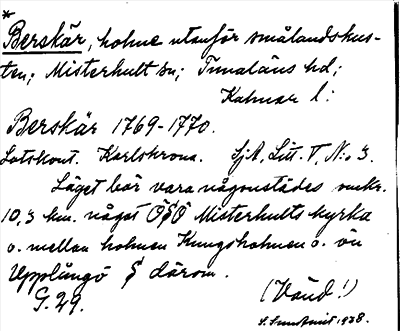 *
Berskär, holme utanför smålandskus-
ten; Misterhult sn; Tunaläns hd;
Kalmar l:
Berskär 1769-1770.
Lotskont. Karlskrona. SjA, Litt. V, N:o 3.
Läget bör vara någonstädes omkr.
10,3 km. något ÖSÖ Misterhults kyrka
o. mellan holmen Kungsholmen o. ön
Upplångö S därom.
G. 29. (Vänd!)
1938.